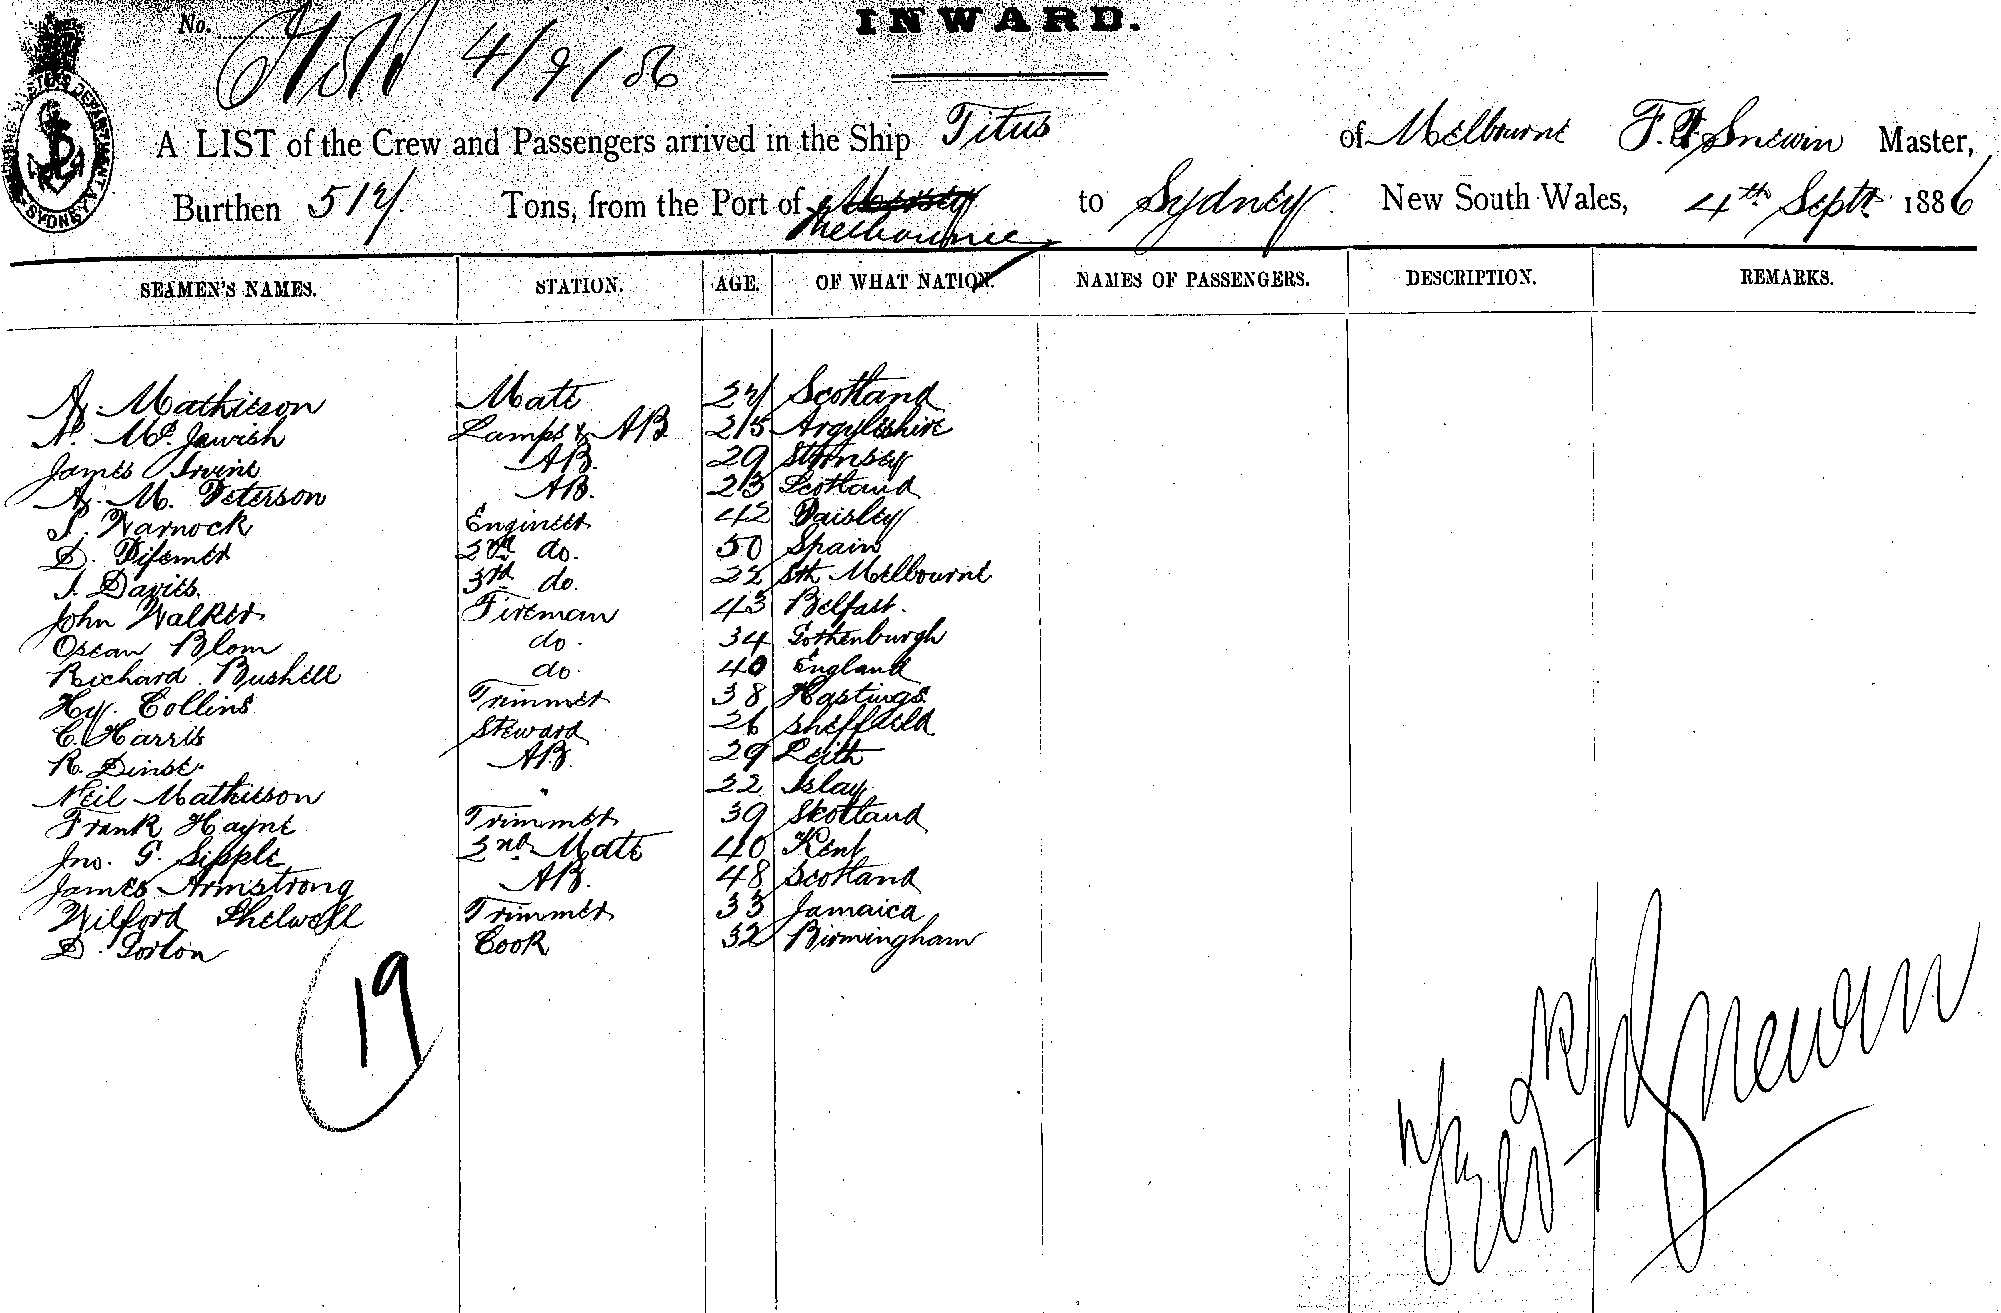 No.
4/9/86
INWARD.
A LIST of the Crew and Passengers arrived in the Ship Titus of Melbourne F. Snewin Master,
Burthen Tons, from the Port of Melbourne to Sydney New South Wales, 4th Sept. 1886
SEAMEN'S NAMES. STATION. AGE. OF WHAT NATION. NAMES OF PASSENGERS. DESCRIPTION. REMARKS.
A. Mathieson Mate Scotland
Lamps & AB 25 Argyleshire
James Irvine AB. 29
A. M. Peterson AB. 23 Scotland
S. Warnock Engineer 42 Paisley
D. 2nd do. 50 Spain
J. Davies. 3rd do. 22 Sth Melbourne
John Walker Fireman 43 Belfast.
Oscan Blom do. 34 Gothenburgh
Richard Bushell do. 40 England
Hy. Collins Trimmer 38 Hastings
C. Harris Steward 26 Sheffield
R. AB. 29 Leith
Neil Mathieson " 22 Islay
Frank Hayne Trimmer 39 Scotland
Jno. G. Sipple 2nd Mate 40 Kent
James Armstrong AB. 48 Scotland
Wilford Shelwell Trimmer 33 Jamaica
D. Gorton Cook 32 Birmingham
19
Snewin